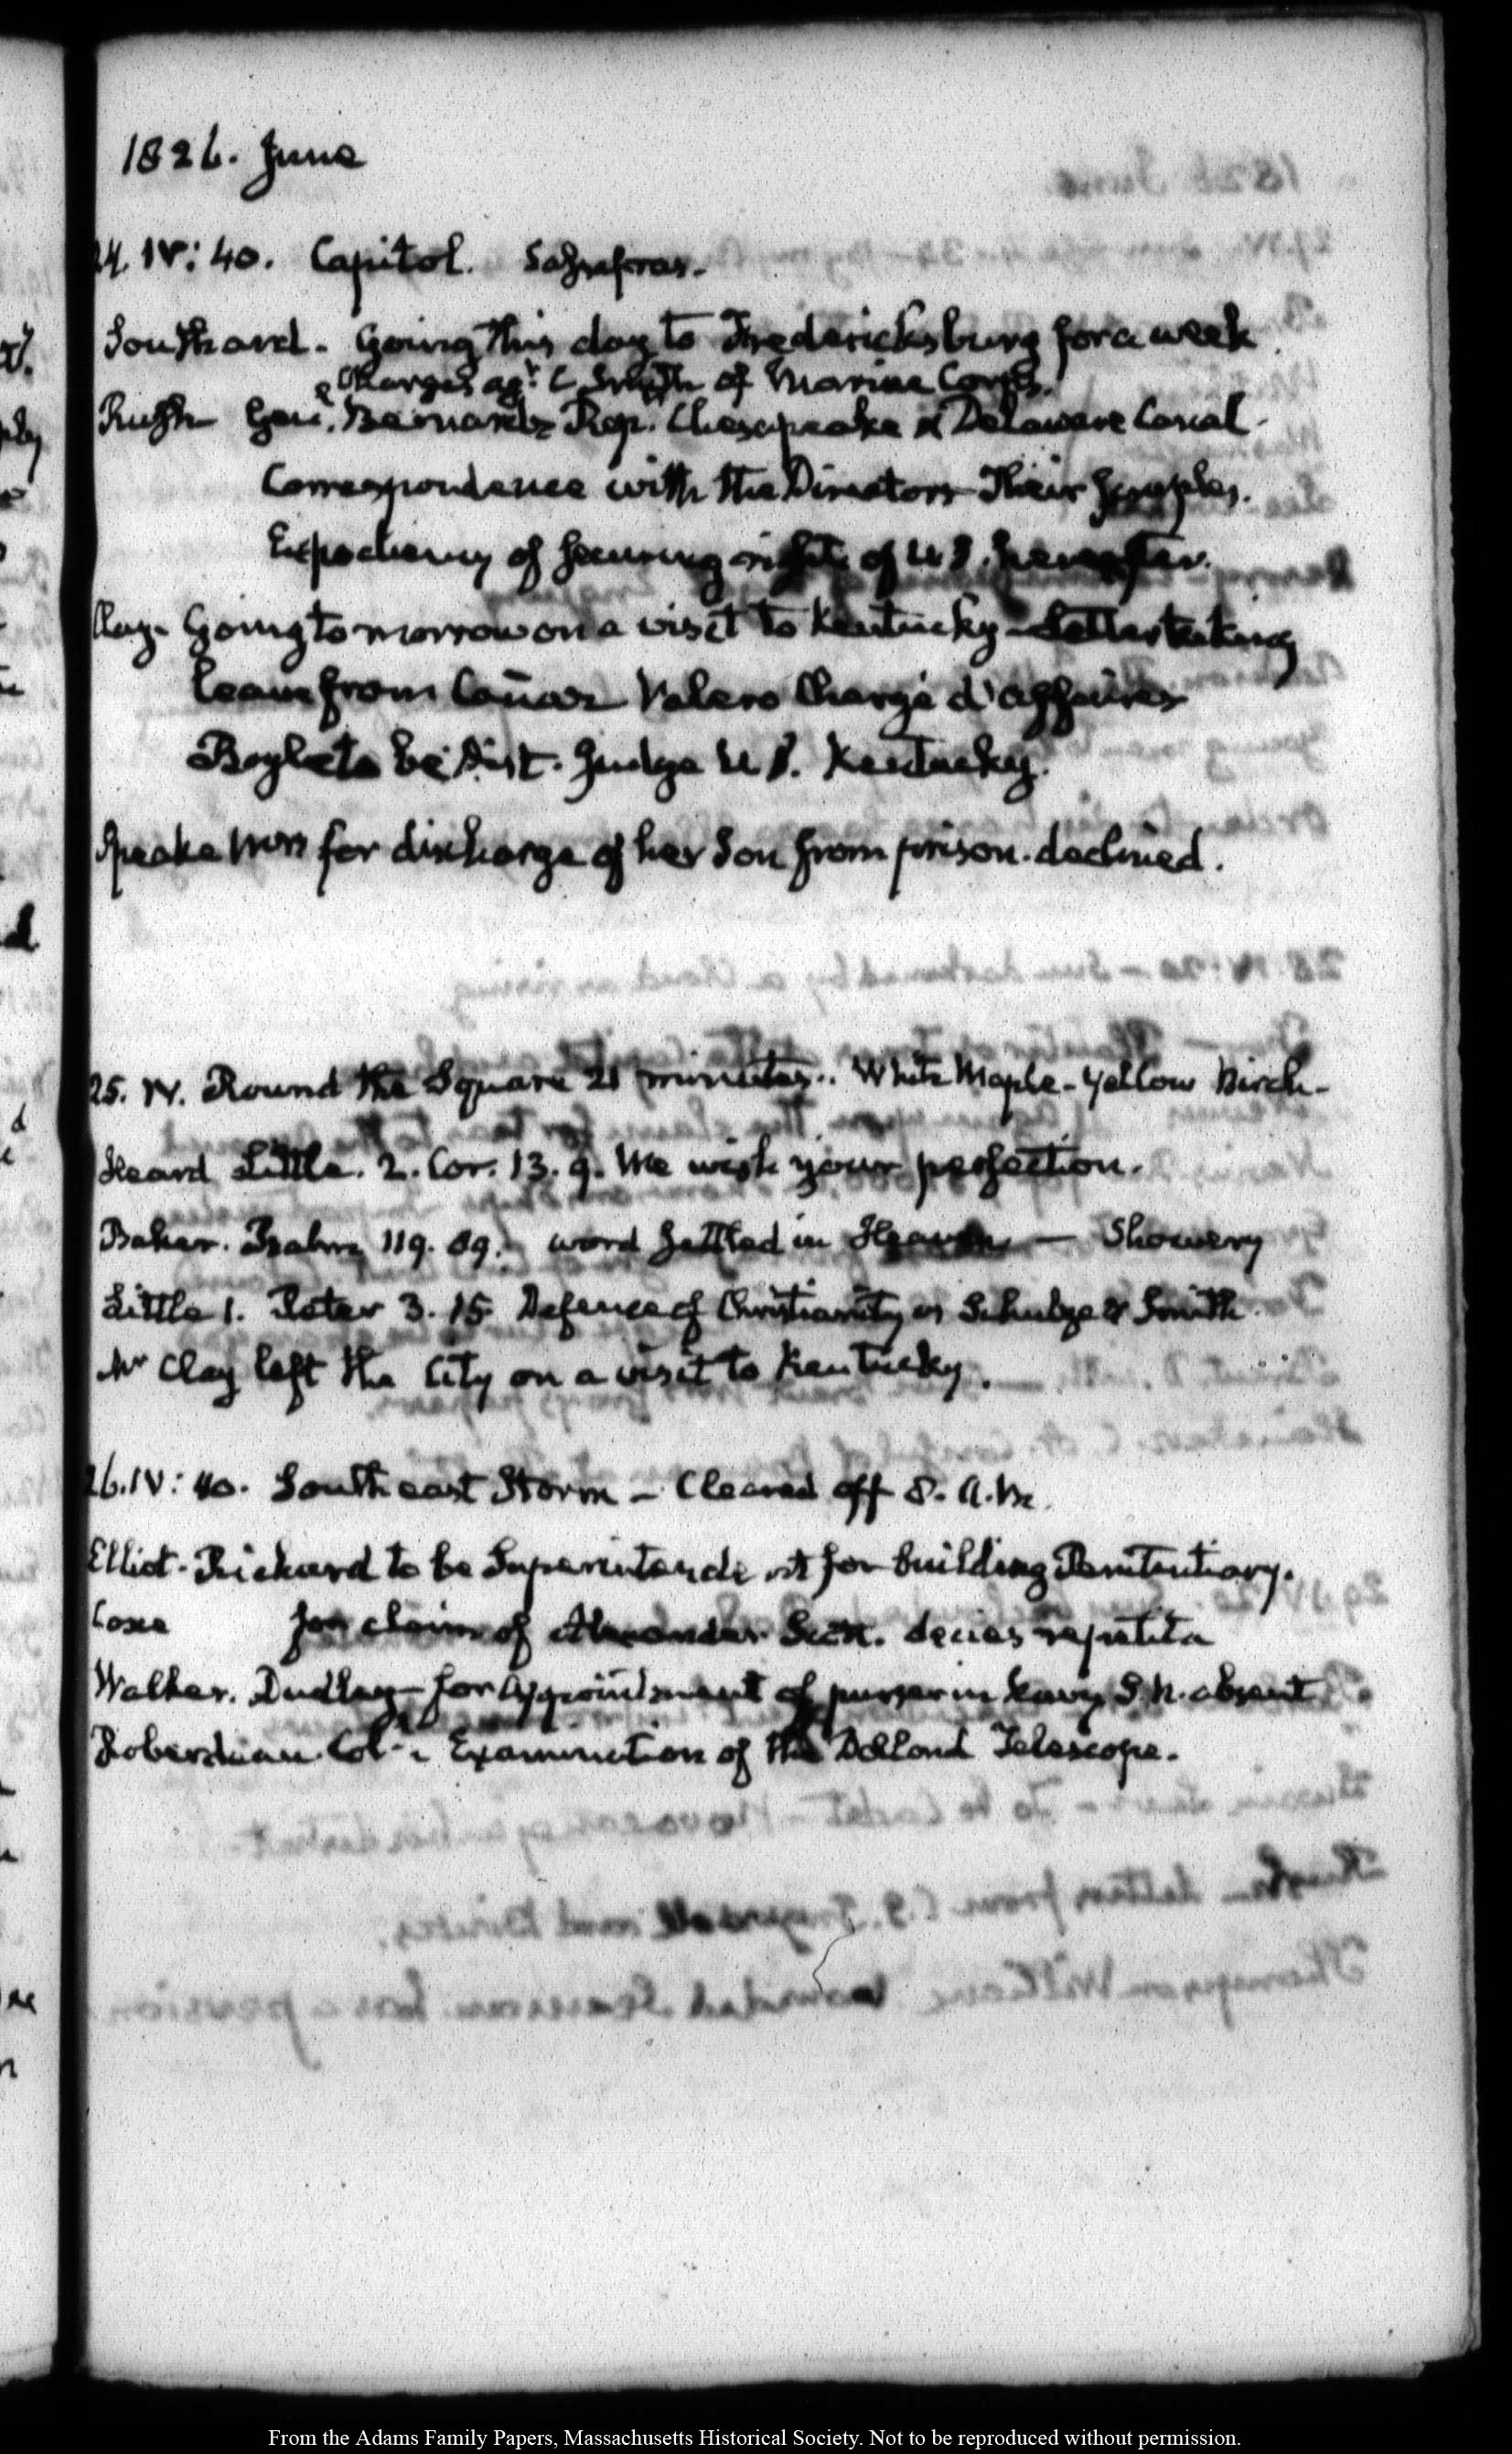 1826. June
24. IV: 40. Capitol. Sassafras.
Southard. Going this day to Fredericksburg for a week
& Charges agt. C Smith of Marine Corps.
Rush Genl. Bernard's Rep. Chesapeake & Delaware Canal.
Correspondence with the Directors Their scruples.
Expediency of securing right of U S. hereafter.
Clay. Going tomorrow on a visit to Kentucky - Letter taking
leave from Cañaz Valero Chargé d'affaires
Boyle to be Dist. Judge U S. Kentucky.
Speake Mrs for discharge of her Son from prison. declined.
25. IV. Round the Square 21 minutes. White Maple - Yellow Birch -
Heard Little. 2. Cor. 13. 9. We wish your perfection.
Baker. Psalm 119. 89. word settled in Heaven — Showery
Little 1. Peter 3. 15 Defence of Christianity vs Schulze & Smith.
Mr Clay left the City on a visit to Kentucky.
26. IV: 40. South east Storm - Cleared off 8. A.M.
Elliot. Rickard to be Superintendent for building Penitentiary.
Coxe for claim of Alexander Scott. decies repetita
Walker. Dudley - for appointment of purser in Navy S. N. absent
Roberdeau. Coll. Examination of the Dollond Telescope.
From the Adams Family Papers, Massachusetts Historical Society. Not to be reproduced without permission.